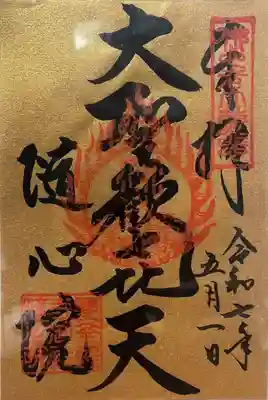 奉拝
大聖歓㐂天
随心院
令和七年
五月一日